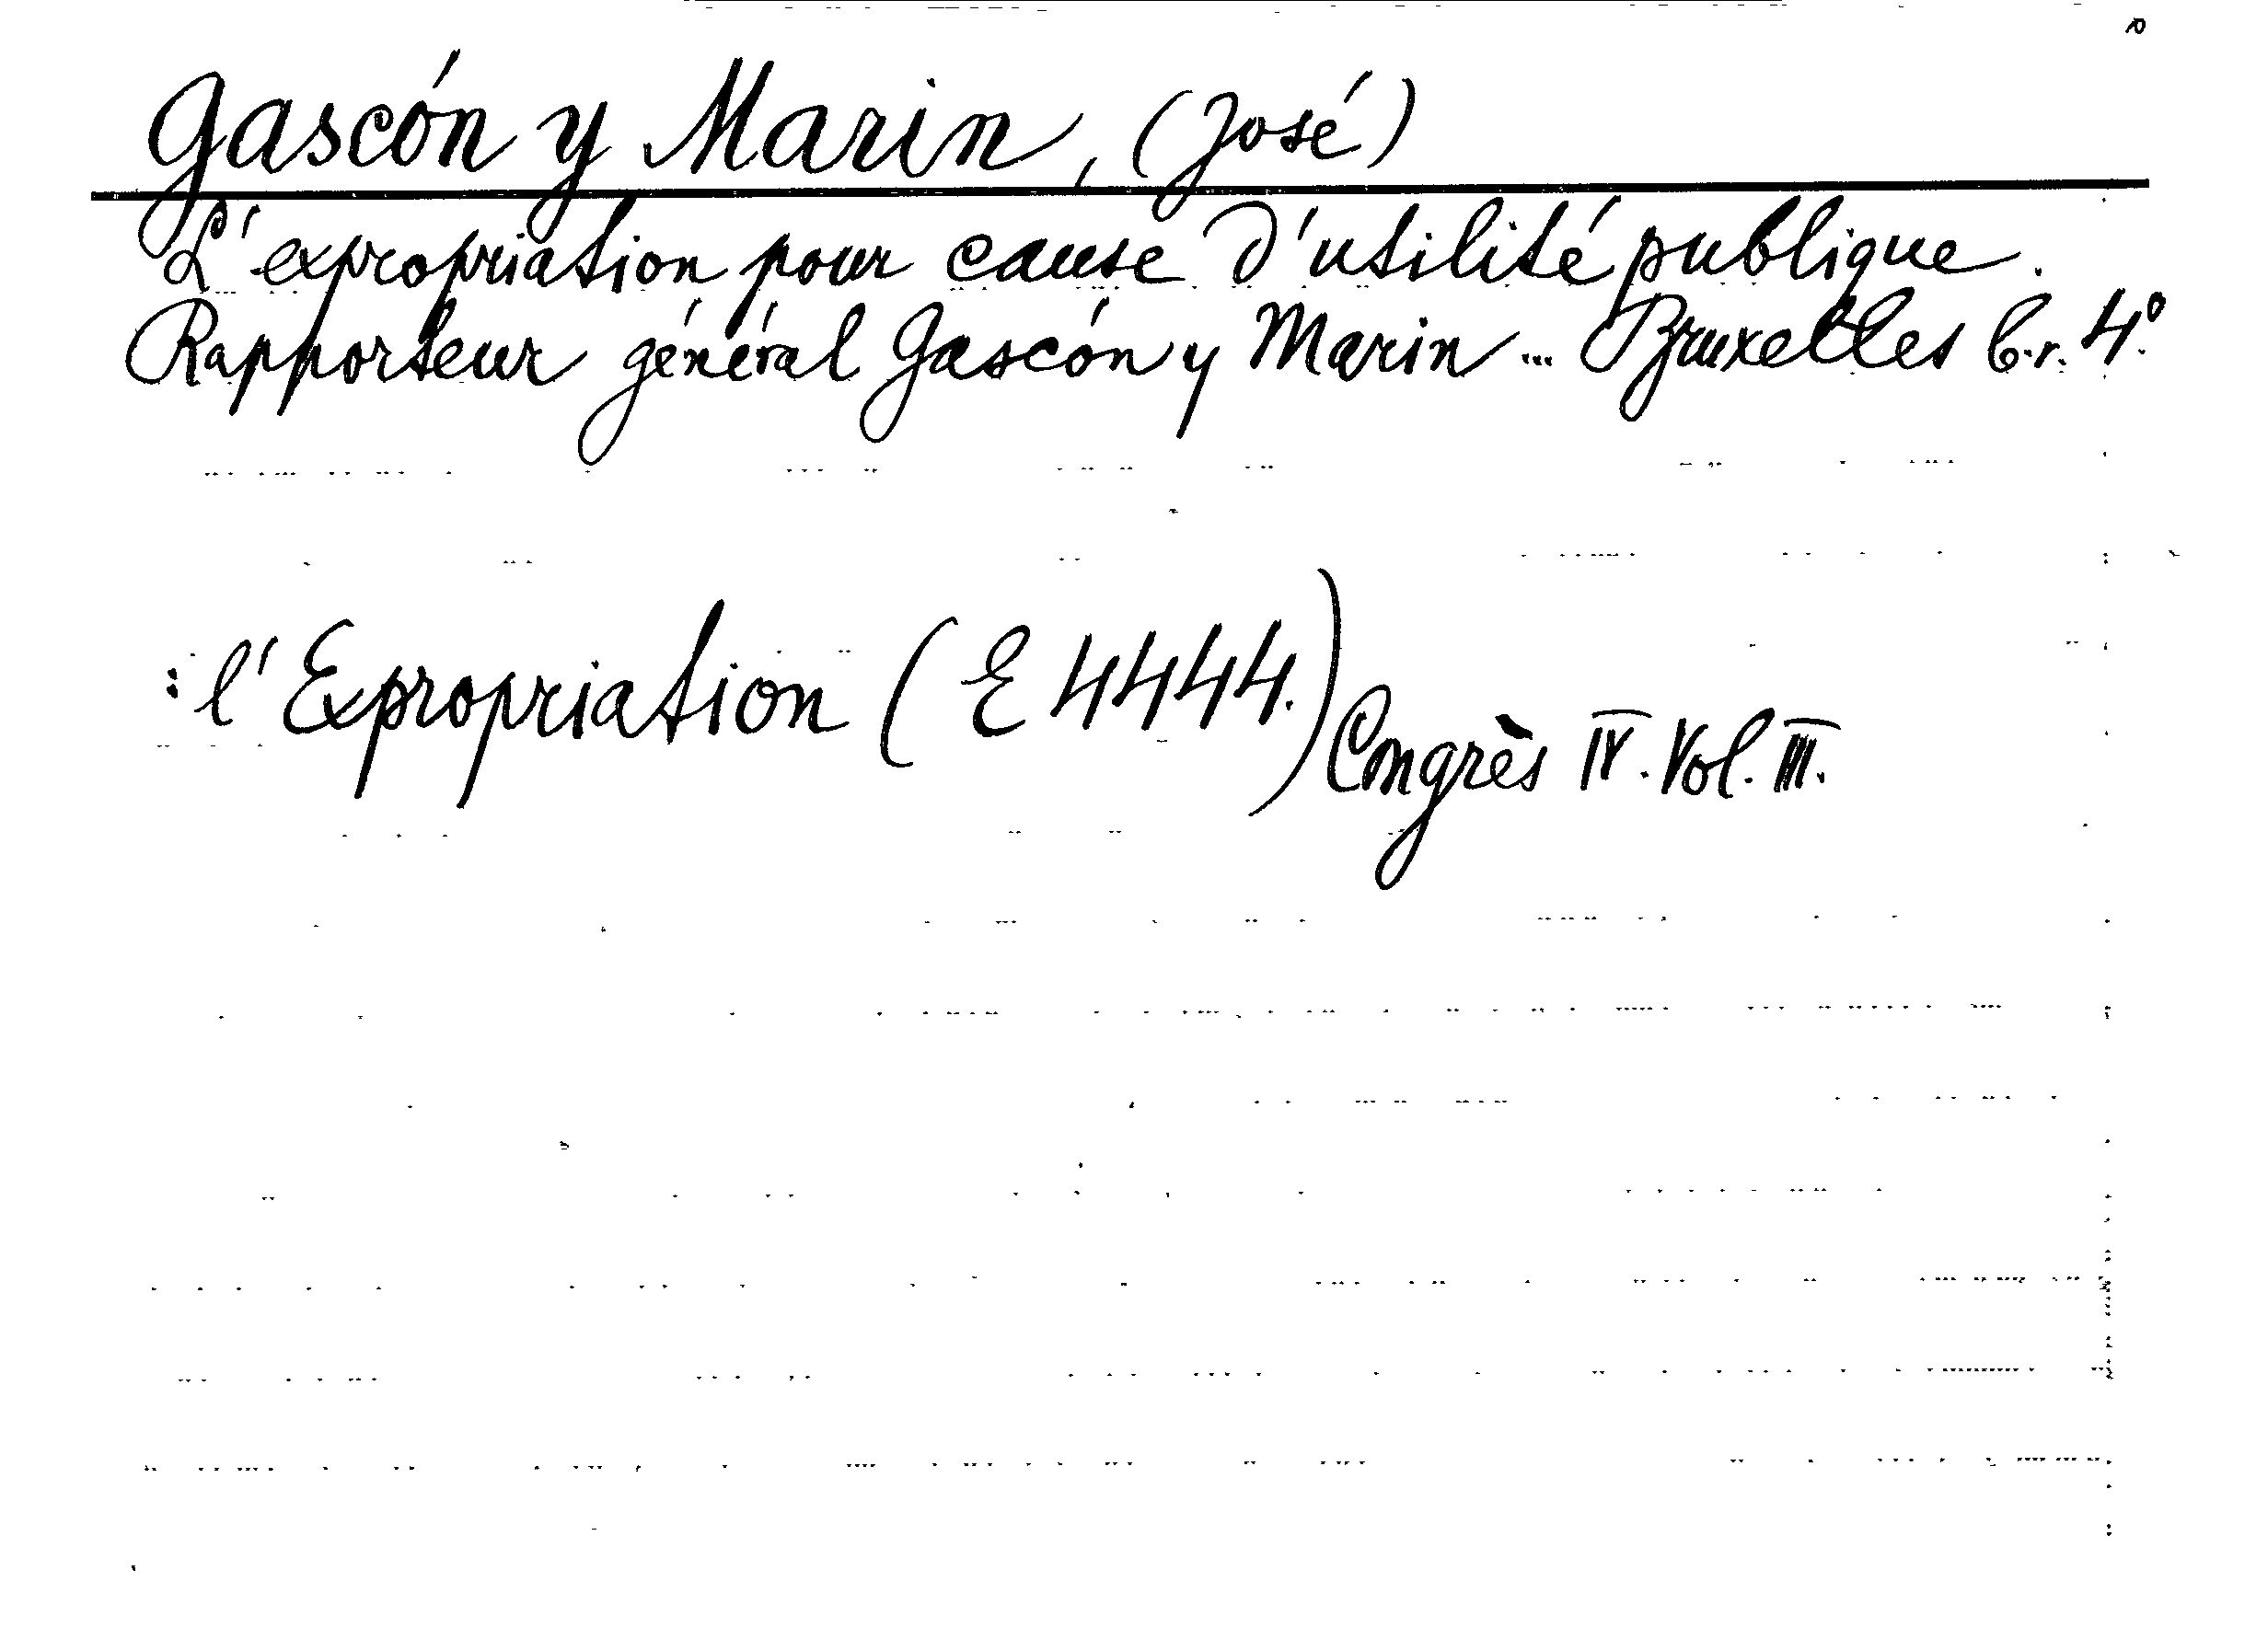 Gascón y Marin, (José)
L'expropriation pour cause d'utilité publique.
Rapporteur général Gascón y Marin ... Bruxelles b.r. 4º
: l'Expropriation (E 4444.) Congrès IV. Vol. III.